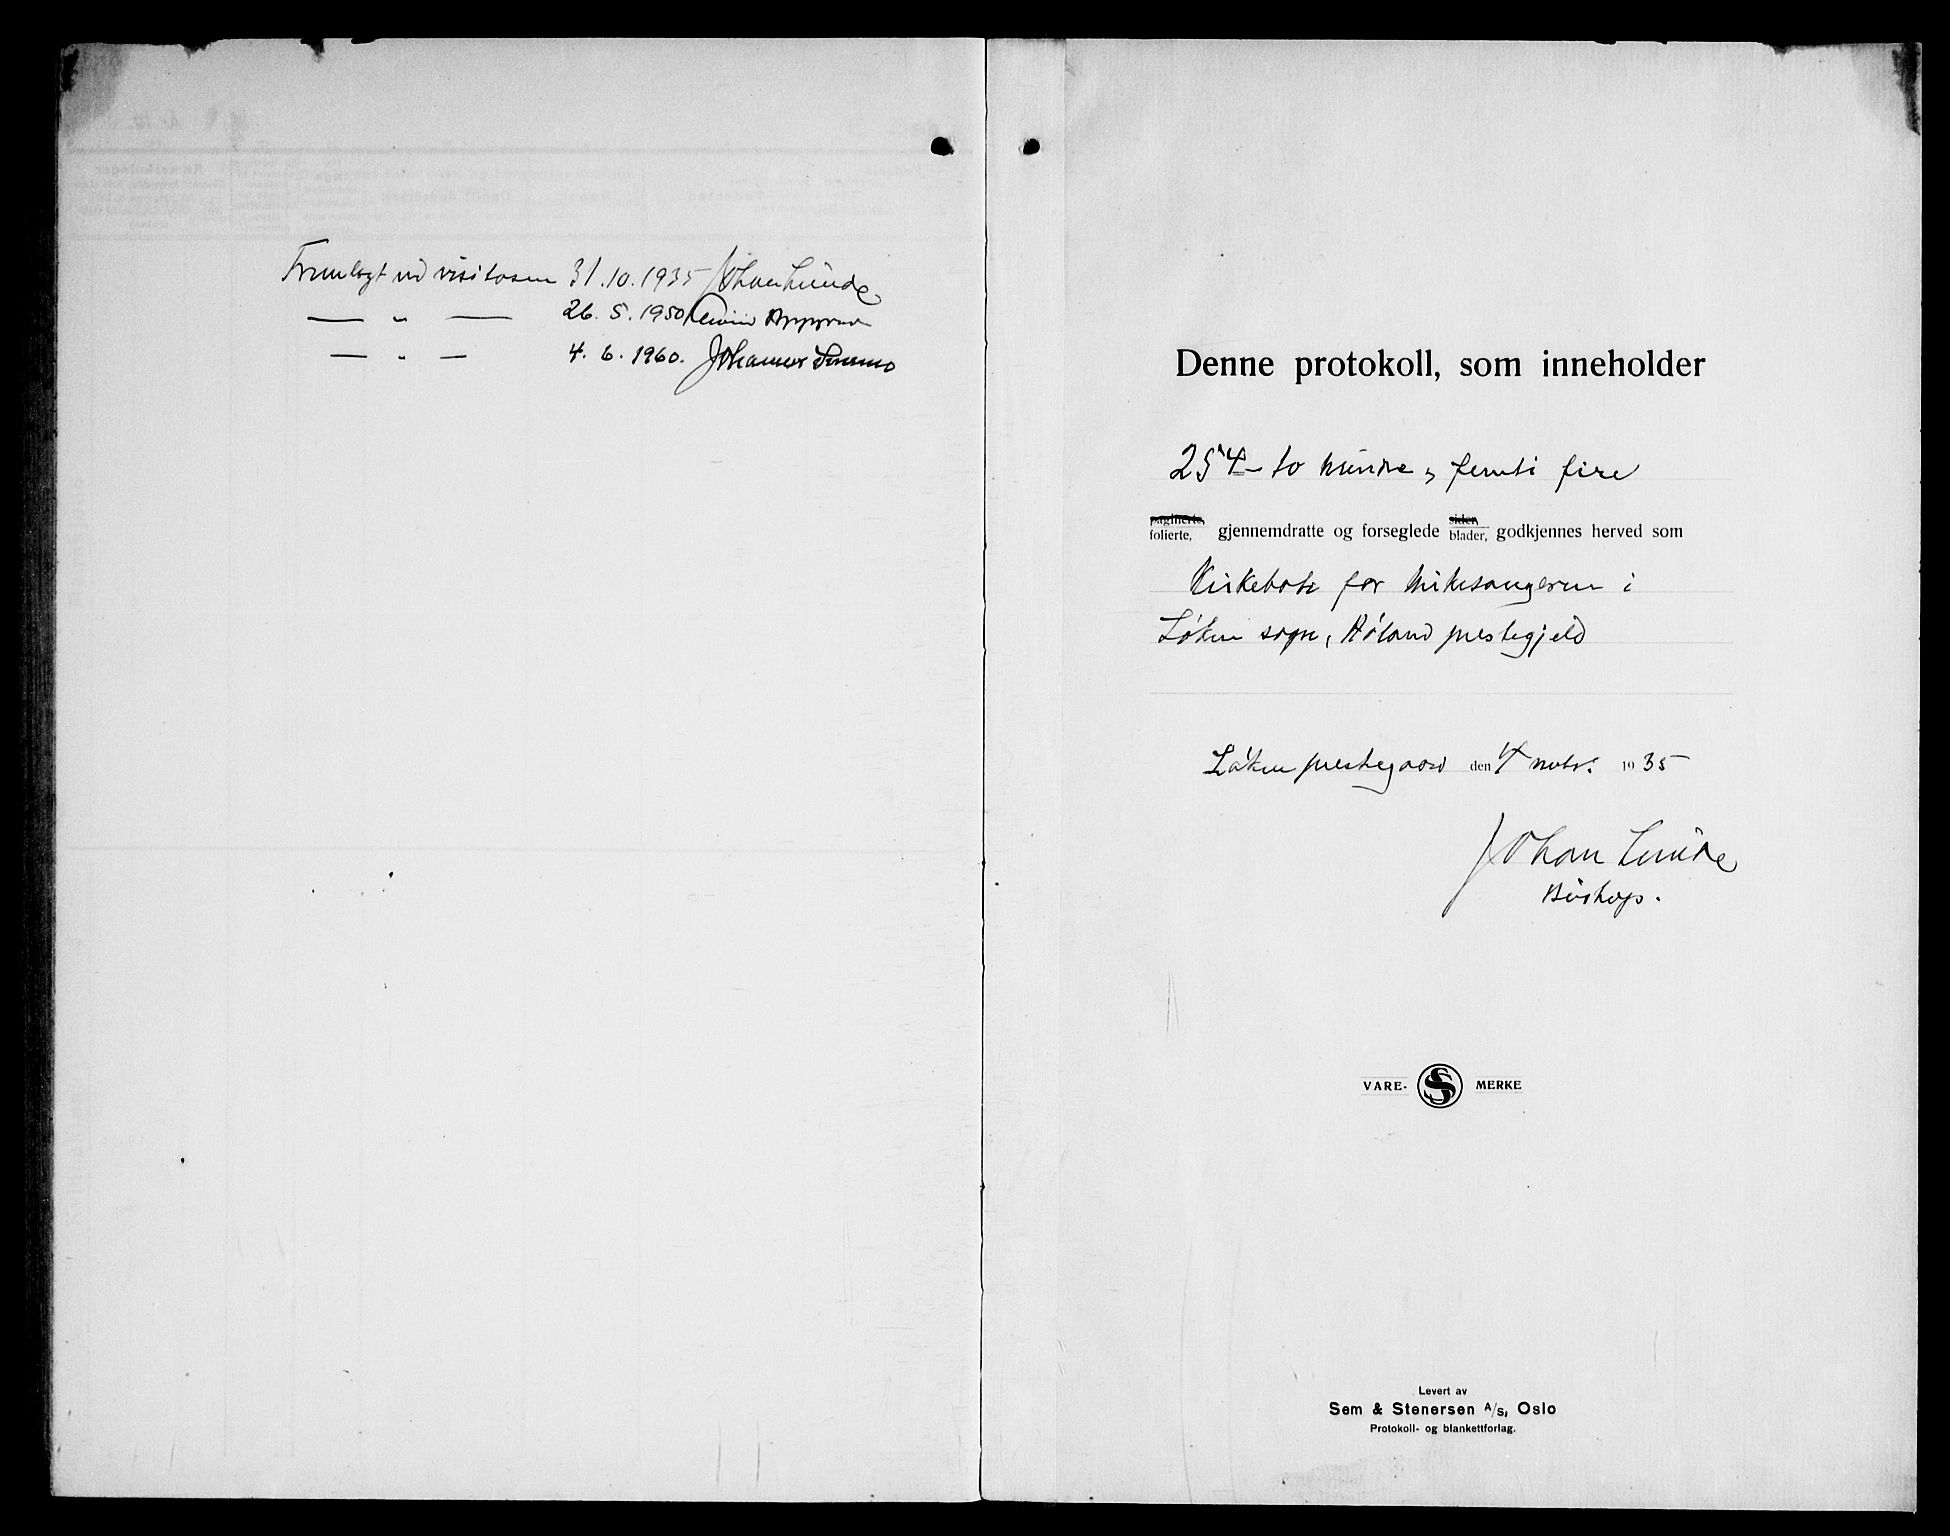 Fremlagt ved visitasen 31.10.1935 Johan Lunde
— " — 26. 5. 1950 Eivind Berggrav
— " — 4. 6. 1960. Johannes Smemo
Denne protokoll, som inneholder
254 – to hundre og femti fire
paginerte, folierte, gjennemdratte og forseglede sider, blader, godkjennes herved som
Kirkebok for kirkesangeren i
Løken sogn, Høland prestegjeld
Løken prestegaard den 4 novbr. 1935
Johan Lunde
Biskop.
VARE- S MERKE
Levert av
Sem & Stenersen A/s, Oslo
Protokoll- og blankettforlag.